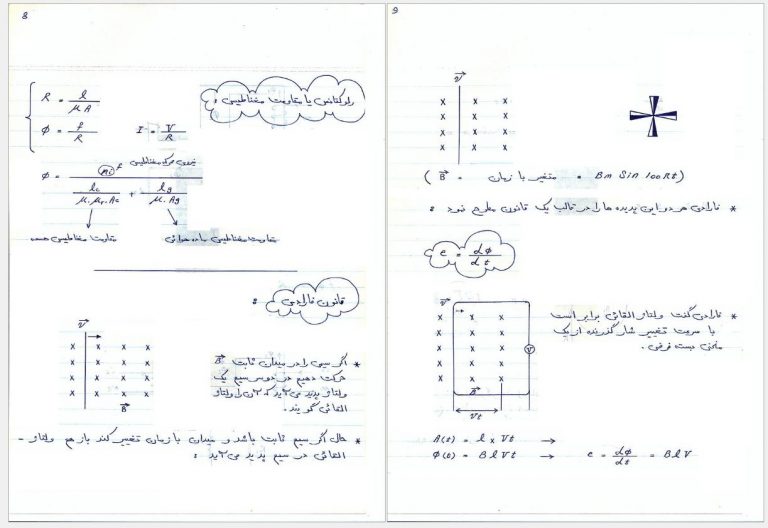 8
رلوکتانس یا مقاومت مغناطیسی :
R = l / μA
φ = f / R    I = V / R
نیروی محرکه مغناطیسی
φ = Ni f / (lc / μ.μr.Ac + lg / μ.Ag)
مقاومت مغناطیسی هسته    مقاومت مغناطیسی ماده هوائی
قانون فارادی :
v
x x x x
x x x x
x x x x
x x x x
B
* اگر سیمی را در میدان ثابت B
حرکت دهیم در دو سر سیم یک
ولتاژ پدید می آید که آن را ولتاژ
القائی گویند .
* حال اگر سیم ثابت باشد و میدان با زمان تغییر کند باز هم ولتاژ -
القائی در سیم پدید می آید :
9
v
x x x
x x x
x x x
x x x
( B = متغیر با زمان = Bm Sin 100πt)
* فارادی هر دو این پدیده ها را در قالب یک قانون مطرح نمود :
e = dφ / dt
v
x x x
x x x
x x x
x x x
x x x
V
B
Vt
* فارادی گفت ولتاژ القائی برابر است
با سرعت تغییر شار گذرنده از یک
منحنی بسته فرضی .
A(t) = l x Vt →
φ(t) = BlVt → e = dφ / dt = BlV